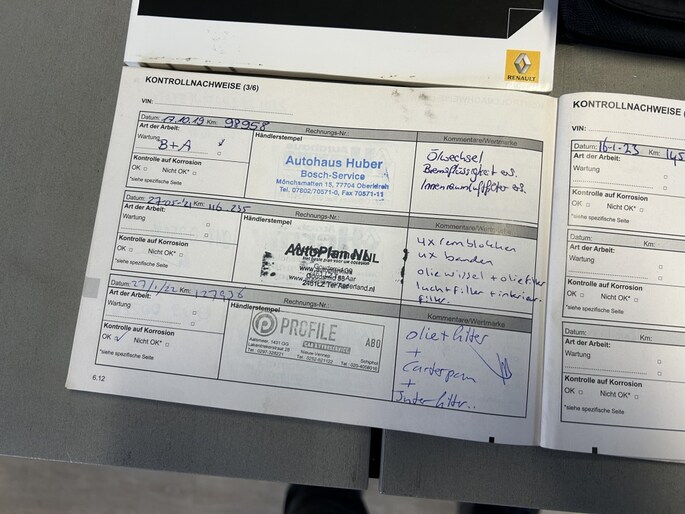 RENAULT
KONTROLLNACHWEISE (3/6)
VIN:
Datum: 17.10.19 Km: 98958
Rechnungs-Nr.:
Kommentare/Wertmarke
Art der Arbeit:
Händlerstempel
Wartung
B+A
Kontrolle auf Korrosion
OK Nicht OK*
*siehe spezifische Seite
Autohaus Huber
Bosch-Service
Mönchsmatten 15, 77704 Oberkirch
Tel. 07802/70571-0, Fax 70571-11
Ölwechsel
Bremsflüssigkeit ers.
Innenraumluftfilter ers.
Datum: 27-05-21 Km: 116-235
Rechnungs-Nr.:
Kommentare/Wertmarke
Art der Arbeit:
Händlerstempel
Wartung
Kontrolle auf Korrosion
OK Nicht OK*
*siehe spezifische Seite
AutoPlanNL
2461LZ Ter Aar
4x remblokken
4x banden
olie wissel + oliefilter
luchtfilter + interieur-
filter.
Datum: 27/1/22 Km:
Rechnungs-Nr.:
Kommentare/Wertmarke
Art der Arbeit:
Händlerstempel
Wartung
Kontrolle auf Korrosion
OK Nicht OK*
*siehe spezifische Seite
PROFILE
ABO
Aalsmeer, 1431 GG
Nieuw Vennep
Schiphol
olie + filter
+
Carterpan
+
6.12
KONTROLLNACHWEISE
VIN:
Datum: 16-1-23 Km: 145
Art der Arbeit:
Wartung
Kontrolle auf Korrosion
OK Nicht OK*
*siehe spezifische Seite
Datum: Km:
Art der Arbeit:
Wartung
Kontrolle auf Korrosion
OK Nicht OK*
*siehe spezifische Seite